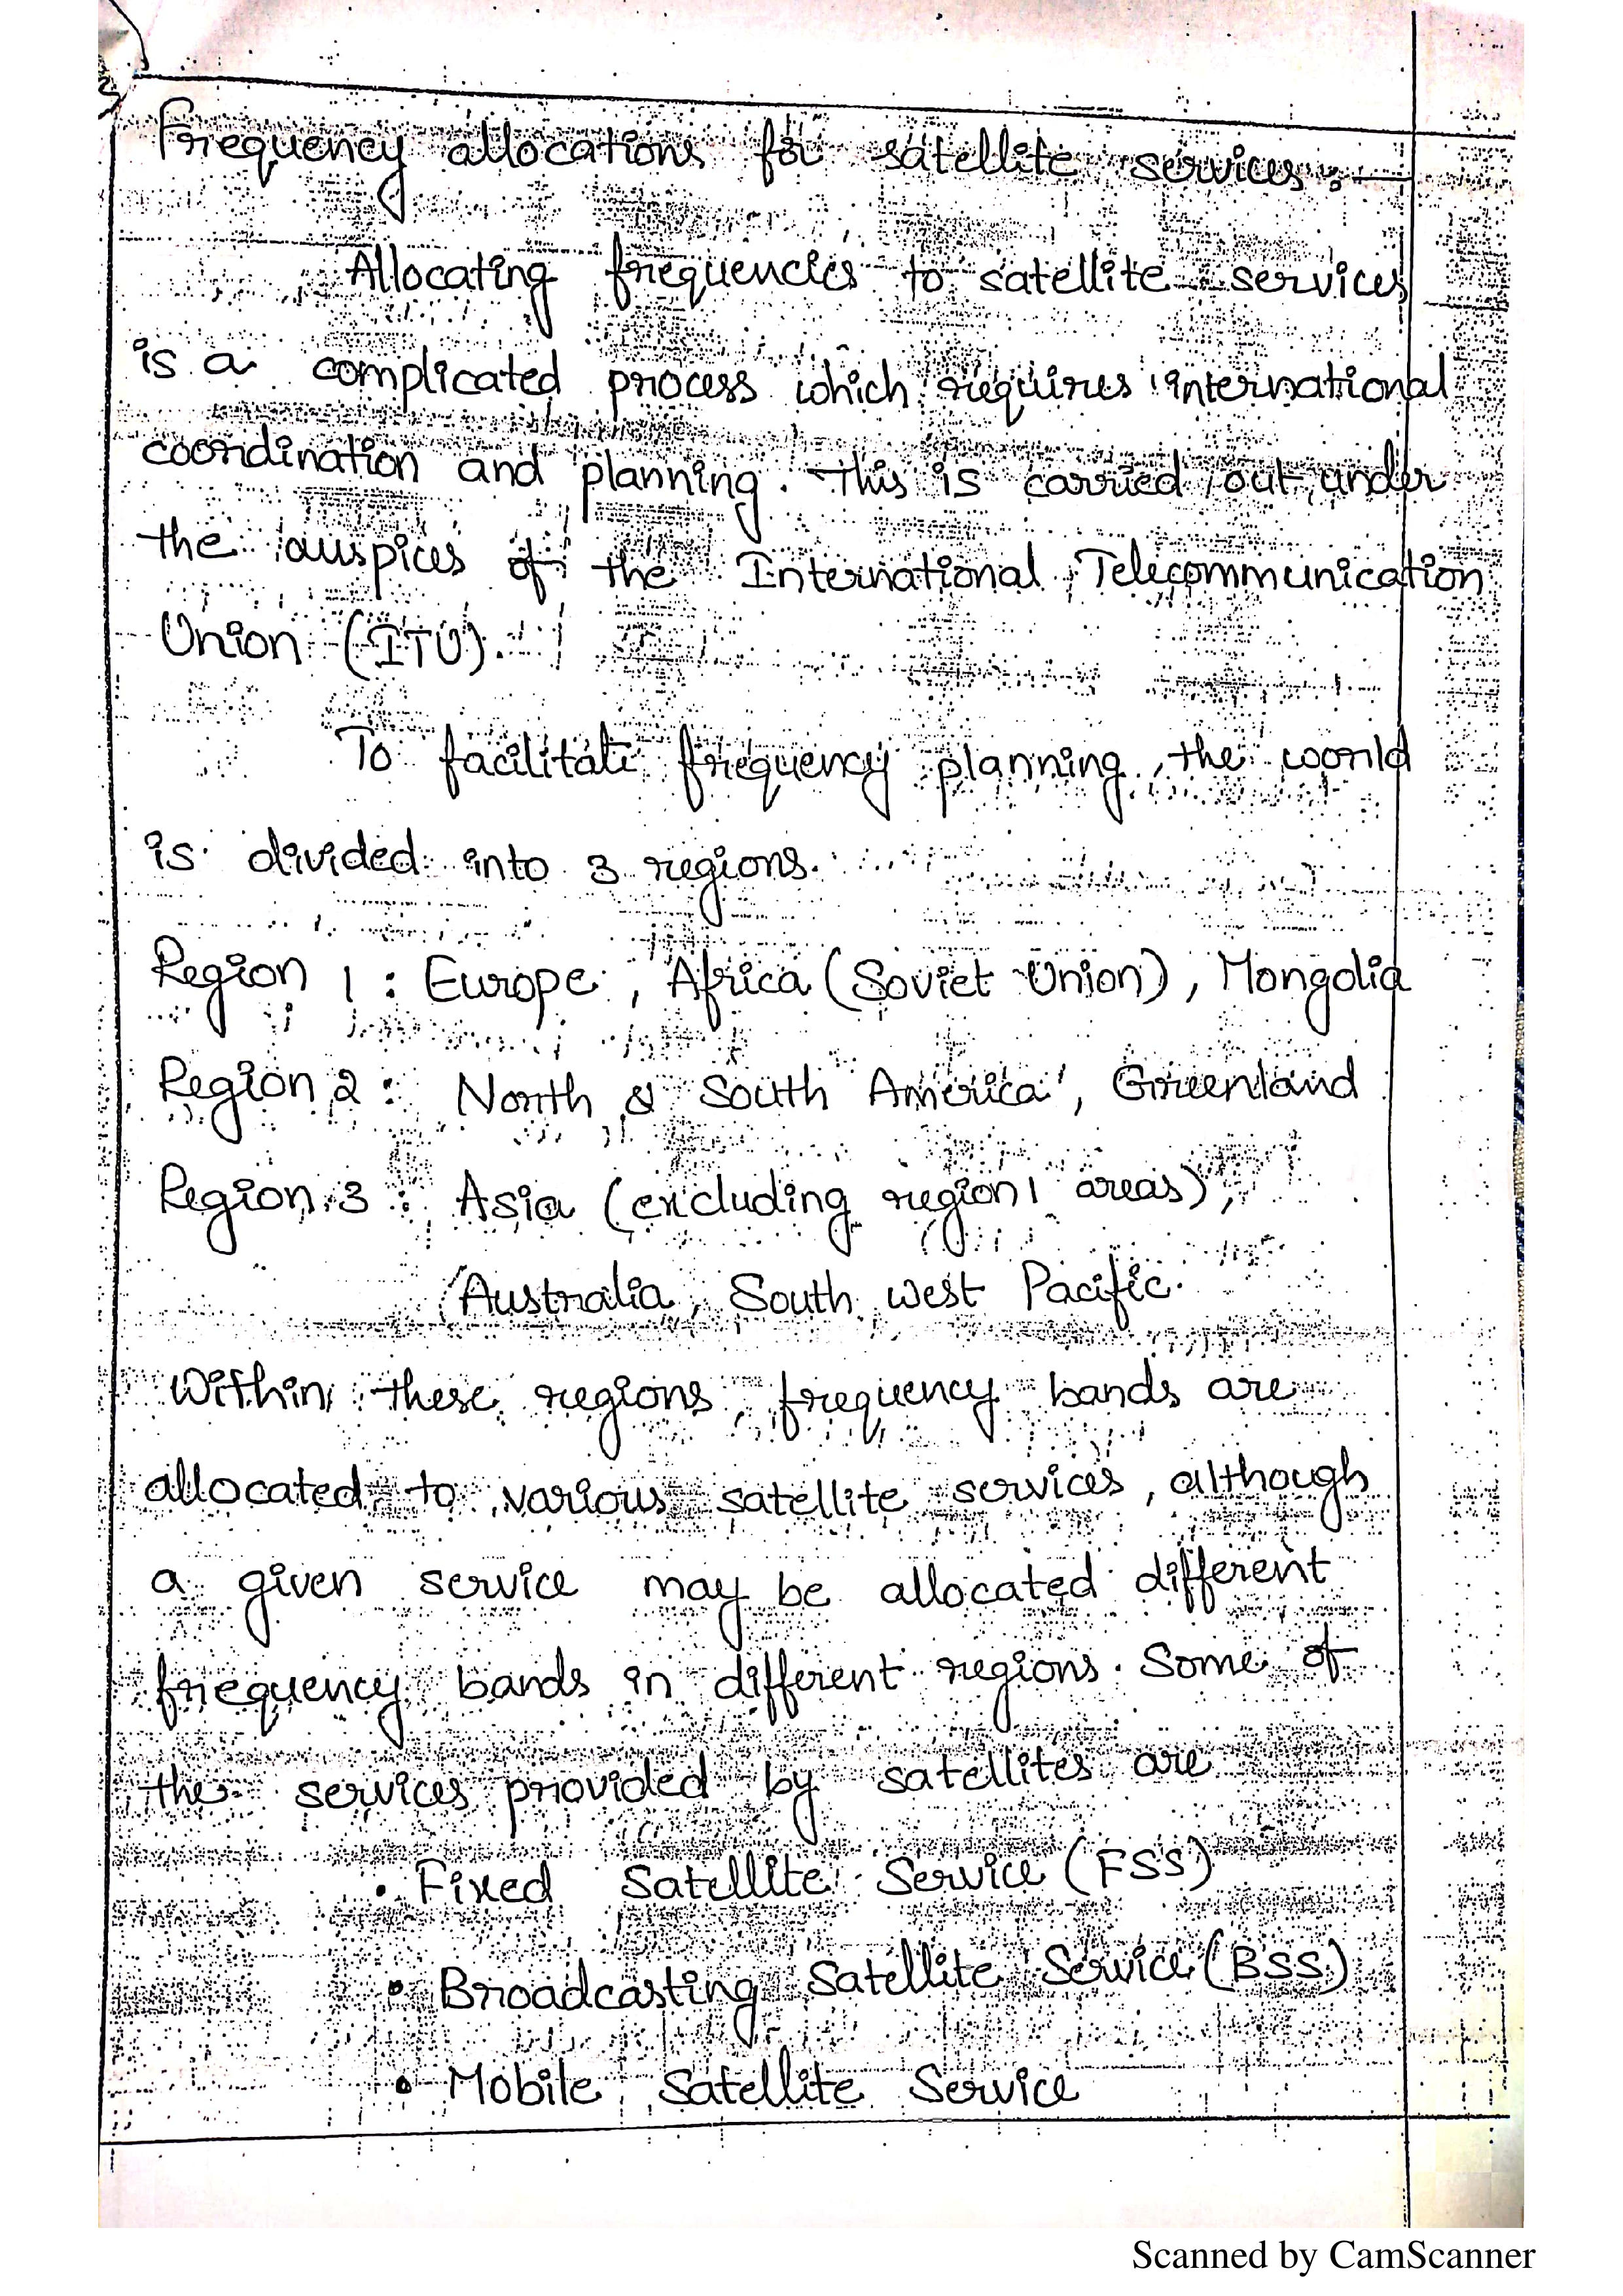 Frequency allocations for satellite services :-
Allocating frequencies to satellite services
is a complicated process which requires international
coordination and planning. This is carried out under
the auspices of the International Telecommunication
Union (ITU).
To facilitate frequency planning, the world
is divided into 3 regions.
Region 1 : Europe, Africa (Soviet Union), Mongolia
Region 2 : North & South America, Greenland
Region 3 : Asia (excluding region 1 areas),
Australia, South west Pacific.
Within these regions, frequency bands are
allocated to various satellite services, although
a given service may be allocated different
frequency bands in different regions. Some of
the services provided by satellites are
• Fixed Satellite Service (FSS)
• Broadcasting Satellite Service (BSS)
• Mobile Satellite Service
Scanned by CamScanner